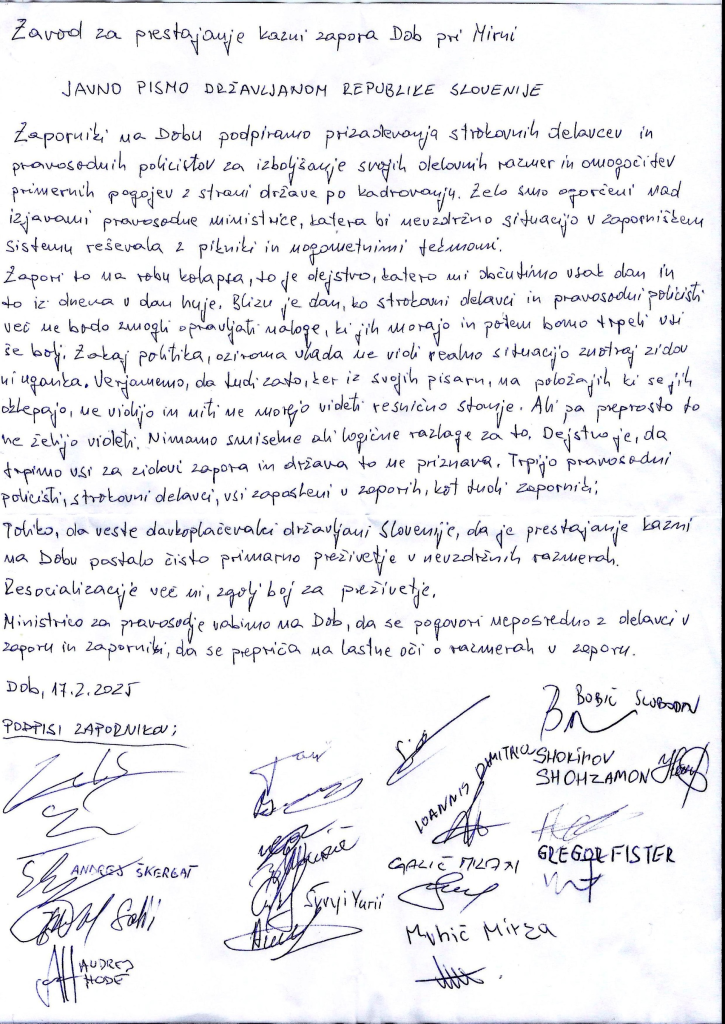 Zavod za prestajanje kazni zapora Dob pri Mirni
JAVNO PISMO DRŽAVLJANOM REPUBLIKE SLOVENIJE
Zaporniki na Dobu podpiramo prizadevanja strokovnih delavcev in
pravosodnih policistov za izboljšanje svojih delovnih razmer in omogočitev
primernih pogojev z strani države po kadrovanju. Zelo smo ogorčeni nad
izjavami pravosodne ministrice, katera bi nevzdržno situacijo v zaporniškem
sistemu reševala z pikniki in nogometnimi tekmami.
Zapori so na robu kolapsa, to je dejstvo, katero mi občutimo vsak dan in
to iz dneva v dan huje. Blizu je dan, ko strokovni delavci in pravosodni policisti
več ne bodo zmogli opravljati naloge, ki jih morajo in potem bomo trpeli vsi
še bolj. Zakaj politika, oziroma vlada ne vidi realno situacijo znotraj zidov
ni uganka. Verjamemo, da tudi zato, ker iz svojih pisarn, na položajih ki se jih
oklepajo, ne vidijo in niti ne morejo videti resnično stanje. Ali pa preprosto to
ne želijo videti. Nimamo smiselne ali logične razlage za to. Dejstvo je, da
trpimo vsi za zidovi zapora in država to ne priznava. Trpijo pravosodni
policisti, strokovni delavci, vsi zaposleni v zaporih, kot tudi zaporniki.
Toliko, da veste davkoplačevalci državljani Slovenije, da je prestajanje kazni
na Dobu postalo čisto primarno preživetje v nevzdržnih razmerah.
Resocializacije več ni, zgolj boj za preživetje.
Ministrico za pravosodje vabimo na Dob, da se pogovori neposredno z delavci v
zaporu in zaporniki, da se prepriča na lastne oči o razmerah v zaporu.
Dob, 17.2.2025
PODPISI ZAPORNIKOV:
BOBIČ SLOBODAN
IOANNIS DIMITRIOU
SHOKIROV
SHOHZAMON
ANDREJ ŠKERGAT
GALIČ MILAN
GREGOR FISTER
Syvyi Yurii
Muhič Mirza
ANDREJ
HODE